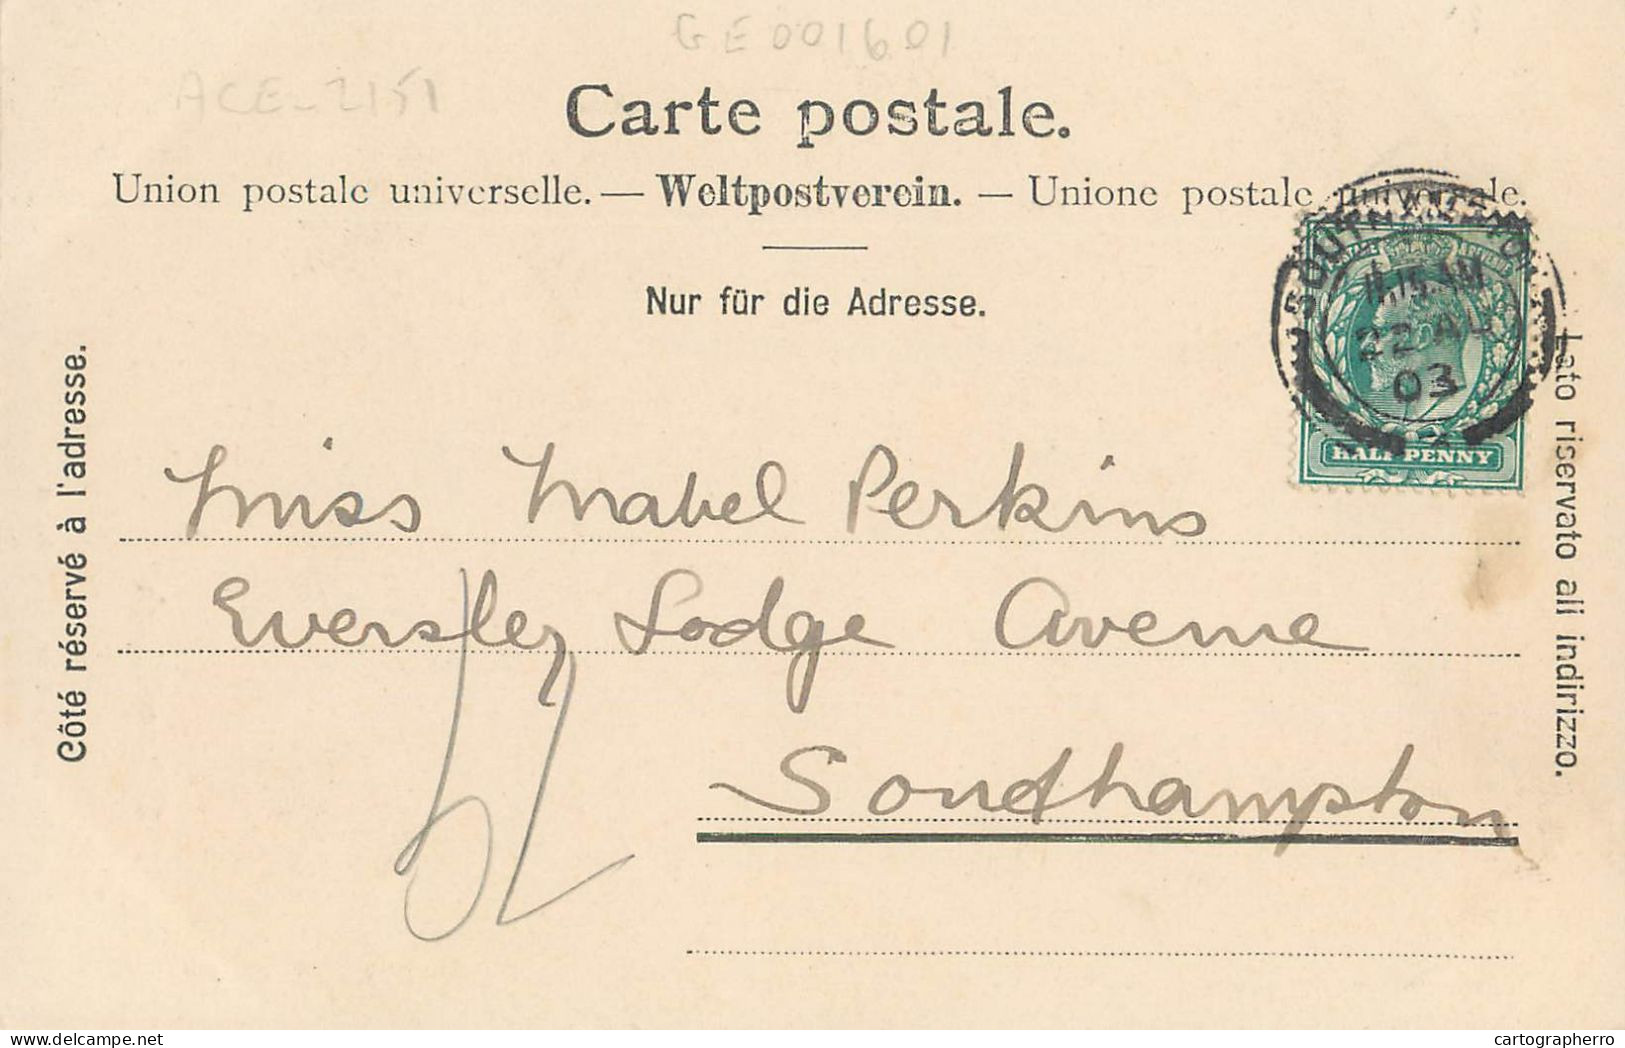 GE001601
ACE-2151
Carte postale.
Union postale universelle. — Weltpostverein. — Unione postale universale.
Nur für die Adresse.
Côté réservé à l'adresse.
Lato riservato ali indirizzo.
SOUTHAMPTON
11.15 AM
22 AU
03
HALF PENNY
Miss Mabel Perkins
Eversley Lodge Avenue
Southampton
cartographerro